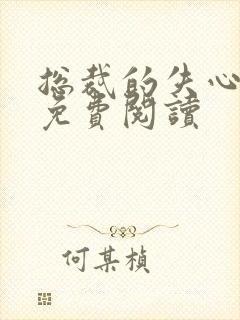 总裁的失心
免費閱讀
何某楨